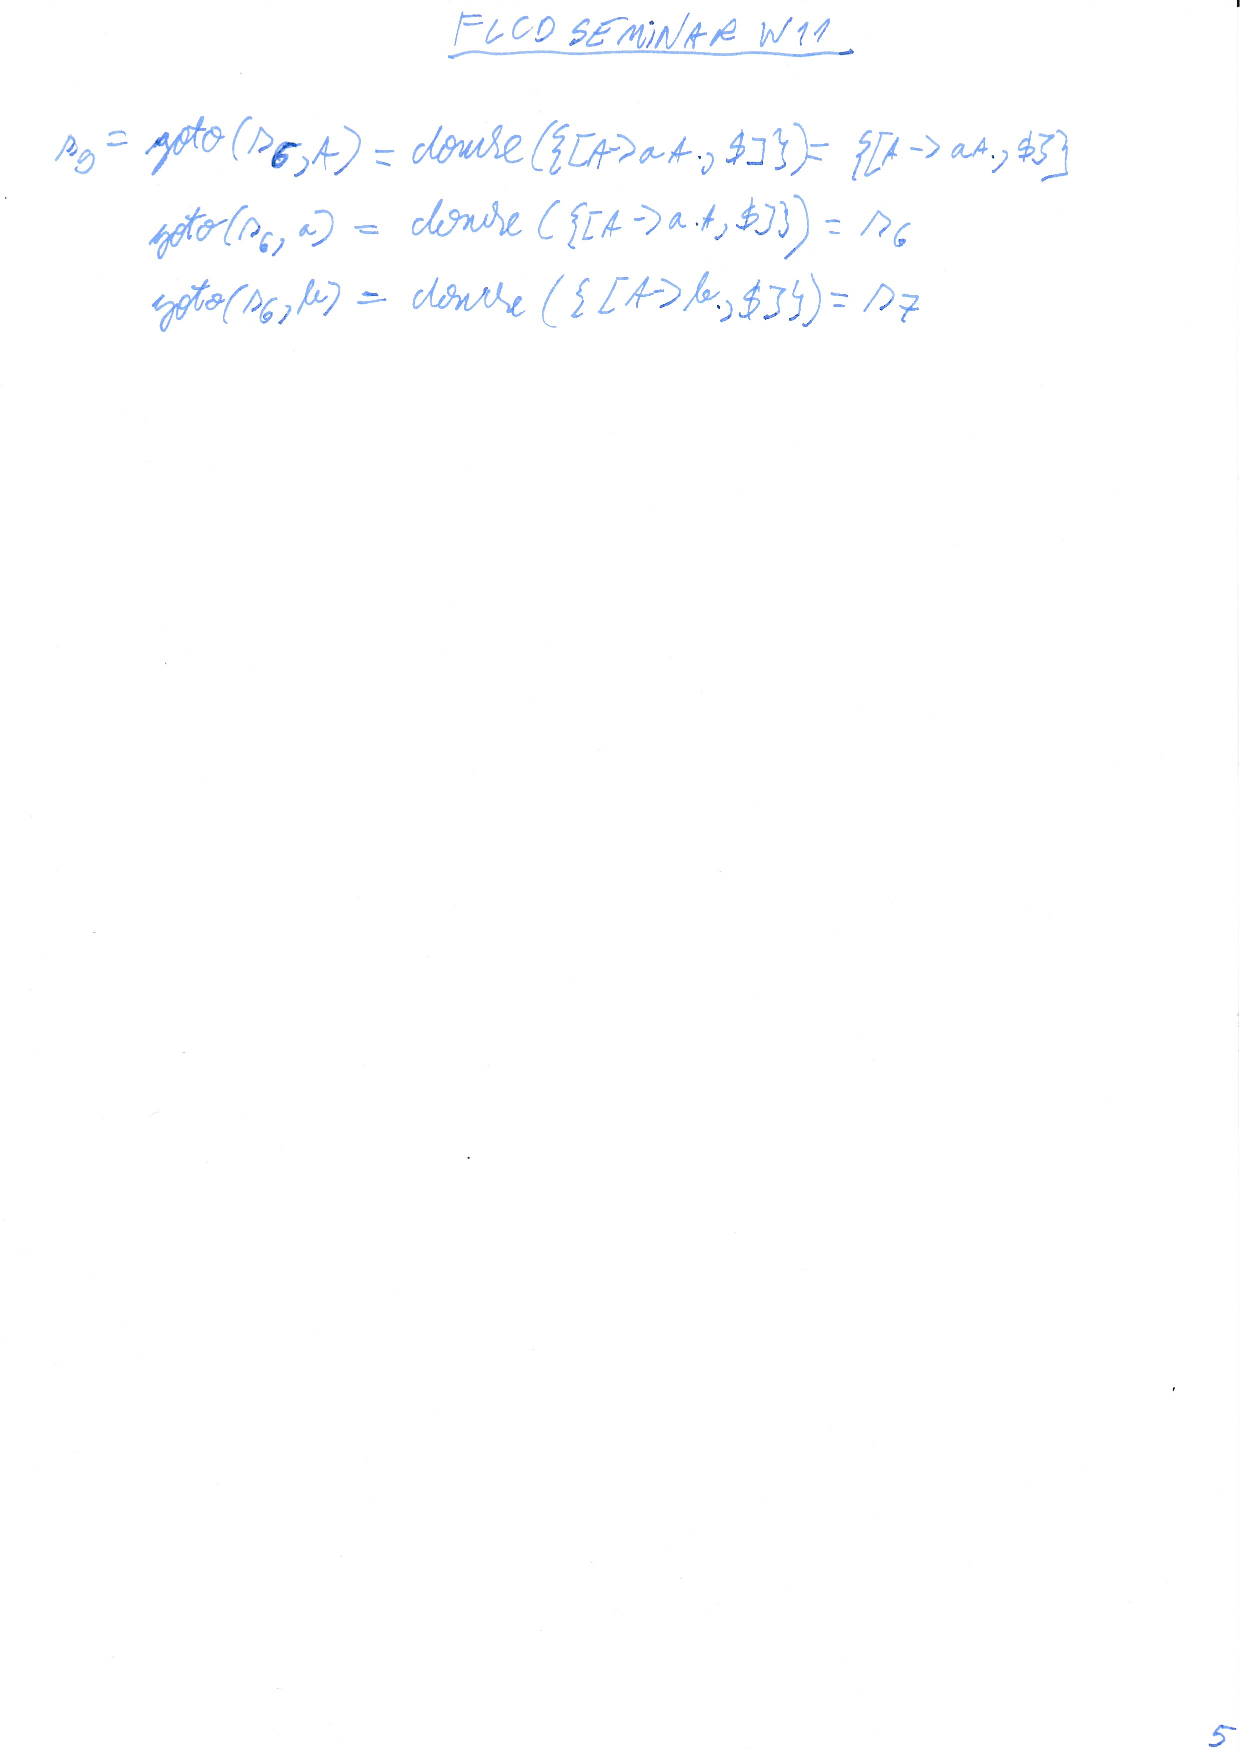 FLCD SEMINAR W11
s9 = goto(s6, A) = closure({[A->aA., $]}) = {[A->aA., $]}
goto(s6, a) = closure({[A->a.A, $]}) = s6
goto(s6, b) = closure({[A->b., $]}) = s7
5